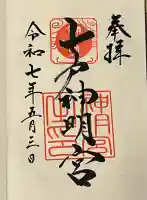 奉拝
七戸神明宮
令和七年五月三日